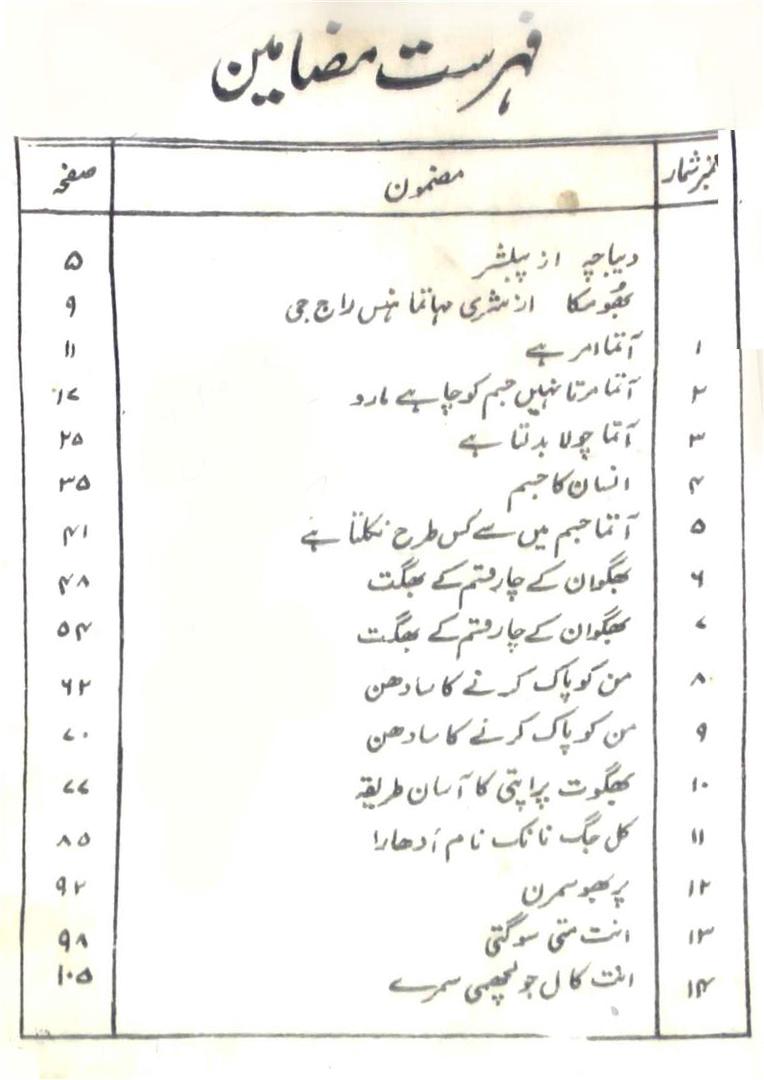 فہرست مضامین
نمبر شمار مضمون صفحہ
دیباچہ از پبلشر ۵
بھُومکا از شری مہاتما ہنس راج جی ۹
۱ آتما امر ہے ۱۱
۲ آتما مرتا نہیں جسم کو چاہے مارو ۱۷
۳ آتما چولا بدلتا ہے ۲۵
۴ انسان کا جسم ۳۵
۵ آتما جسم میں سے کس طرح نکلتا ہے ۴۱
۶ بھگوان کے چار قسم کے بھگت ۴۸
۷ بھگوان کے چار قسم کے بھگت ۵۴
۸ من کو پاک کرنے کا سادھن ۶۲
۹ من کو پاک کرنے کا سادھن ۷۰
۱۰ بھگوت پراپتی کا آسان طریقہ ۷۷
۱۱ کل جگ نانک نام اَدھارا ۸۵
۱۲ پربھو سمرن ۹۲
۱۳ انت متی سو گتی ۹۸
۱۴ انت کال جو لچھمی سمرے ۱۰۵